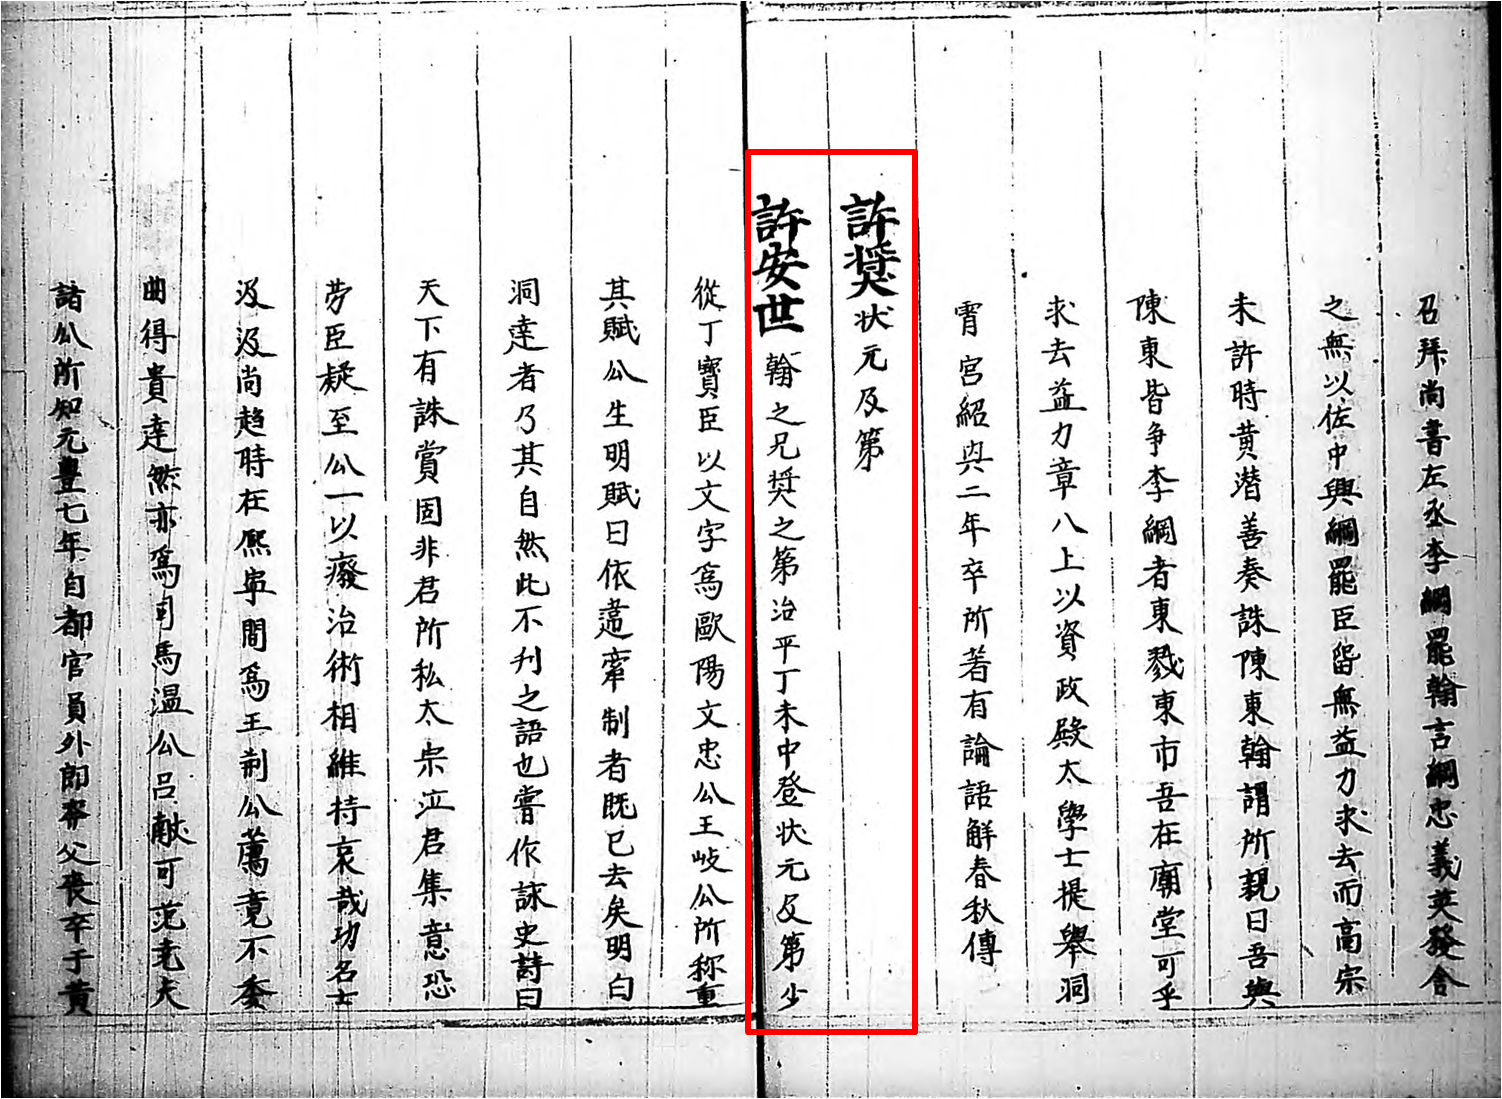 召拜尚書左丞李綱罷翰言綱忠義英發舍
之無以佐中興綱罷臣留無益力求去而高宗
未許時黄潜善奏誅陳東翰謂所親曰吾與
陳東皆争李綱者東戮東市吾在廟堂可乎
求去益力章八上以資政殿大學士提舉洞
霄宮紹興二年卒所著有論語解春秋傳
許奨状元及第
許安世翰之兄奨之第治平丁未中登状元及第少
從丁寶臣以文字爲歐陽文忠公王岐公所称重
其賦公生明賦曰依違牽制者既已去矣明白
洞達者乃其自然此不刋之語也嘗作詠史詩曰
天下有誅賞固非君所私太宗泣君集意恐
勞臣疑至公一以癈治術相維持哀哉功名士
汲汲尚趋時在熙寧間爲王荆公薦竟不委
曲得貴達然亦爲司馬温公吕献可范尭夫
諸公所知元豐七年自都官員外郎奔父喪卒于黄